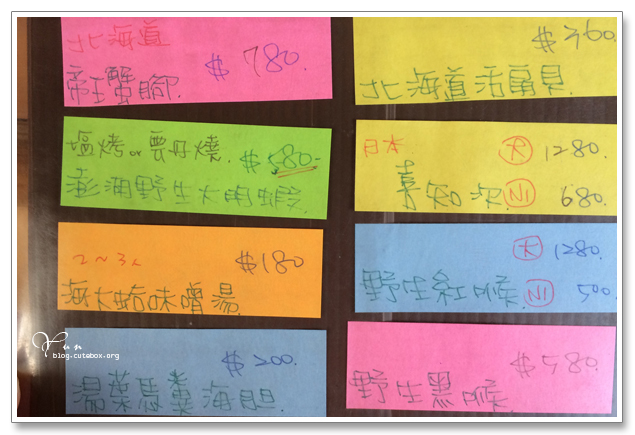 北海道
帝王蟹腳. $ 780.
塩烤 or 雲丹燒. $580-
澎湖野生大明蝦
2~3人 $180
海大蛤味噌湯.
$ 200.
湯葉 海胆.
$ 360.
北海道活扇貝.
日本 大 1280.
喜知次. 小 680.
大 1280.
野生紅喉. 小 500.
$580.
野生黑喉.
Yun
blog.cutabox.org